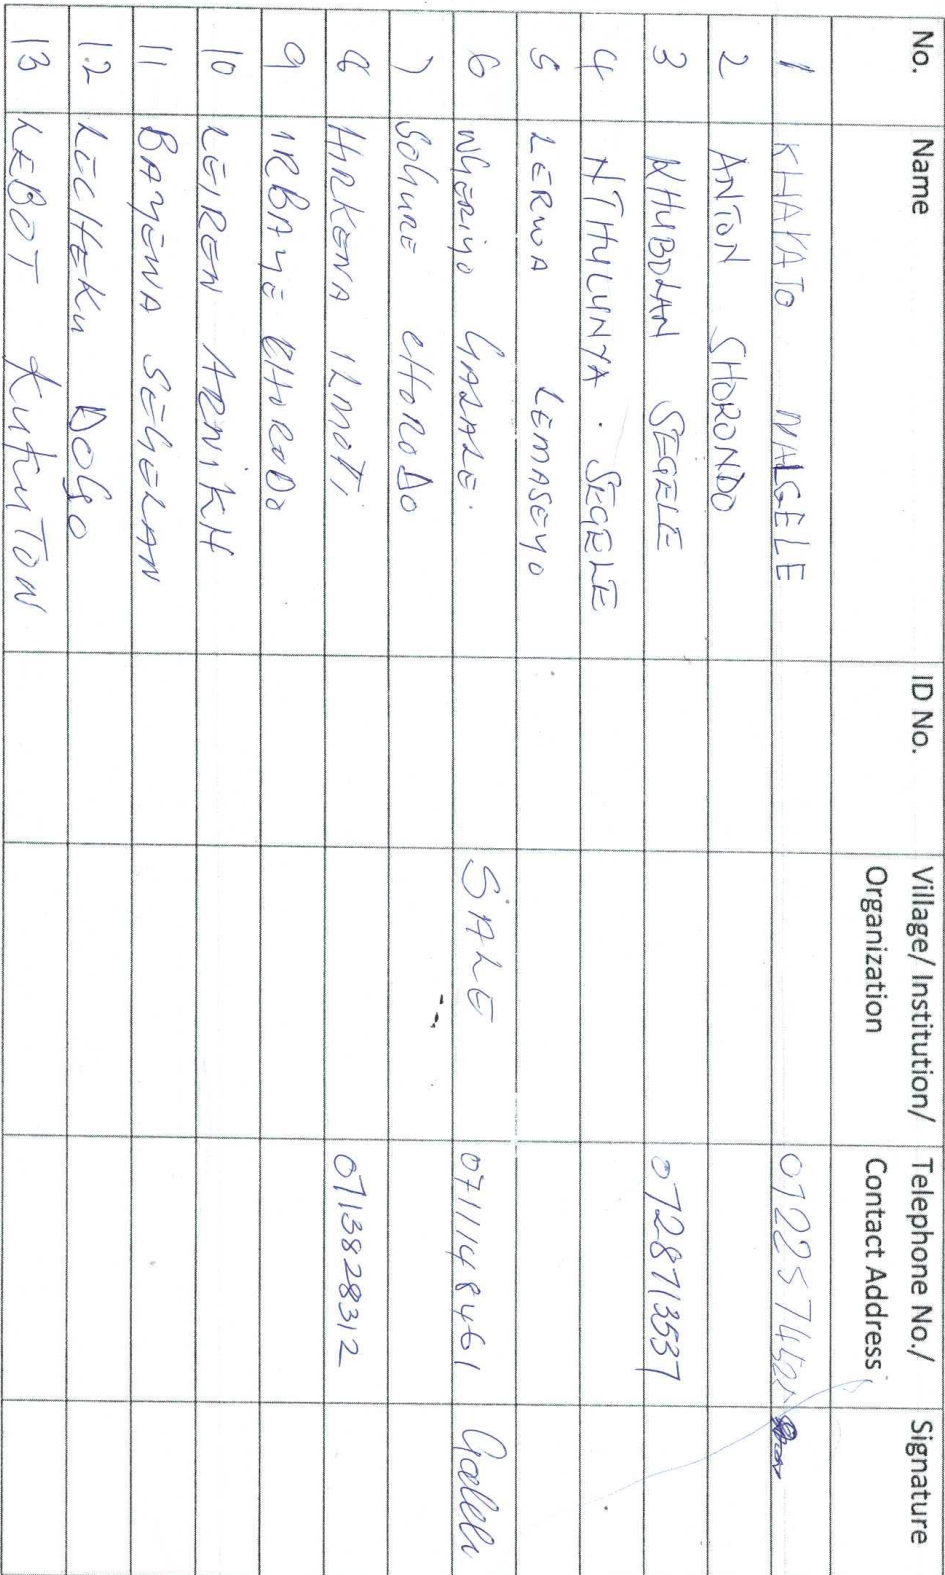 No. Name ID No. Village/ Institution/ Organization Telephone No./ Contact Address Signature
1 KHAYATO NALGELE 0722574521
2 ANTON SHORONDO
3 KHUBDLAN SEGELE 0728713537
4 NTHULUNYA . SEGELE
5 LERWA LEMASEYO
6 WGERIYO GALALE. SALE 0711148461 Galele
7 SOGURE CHORODO
8 HIRKENA ILMOTI 0713828312
9 IRBAYE KHORODO
10 LEIREN ARNIKH
11 BAYENA SEGELAN
12 LECHEKU DOGO
13 LEBOT KUTUTON